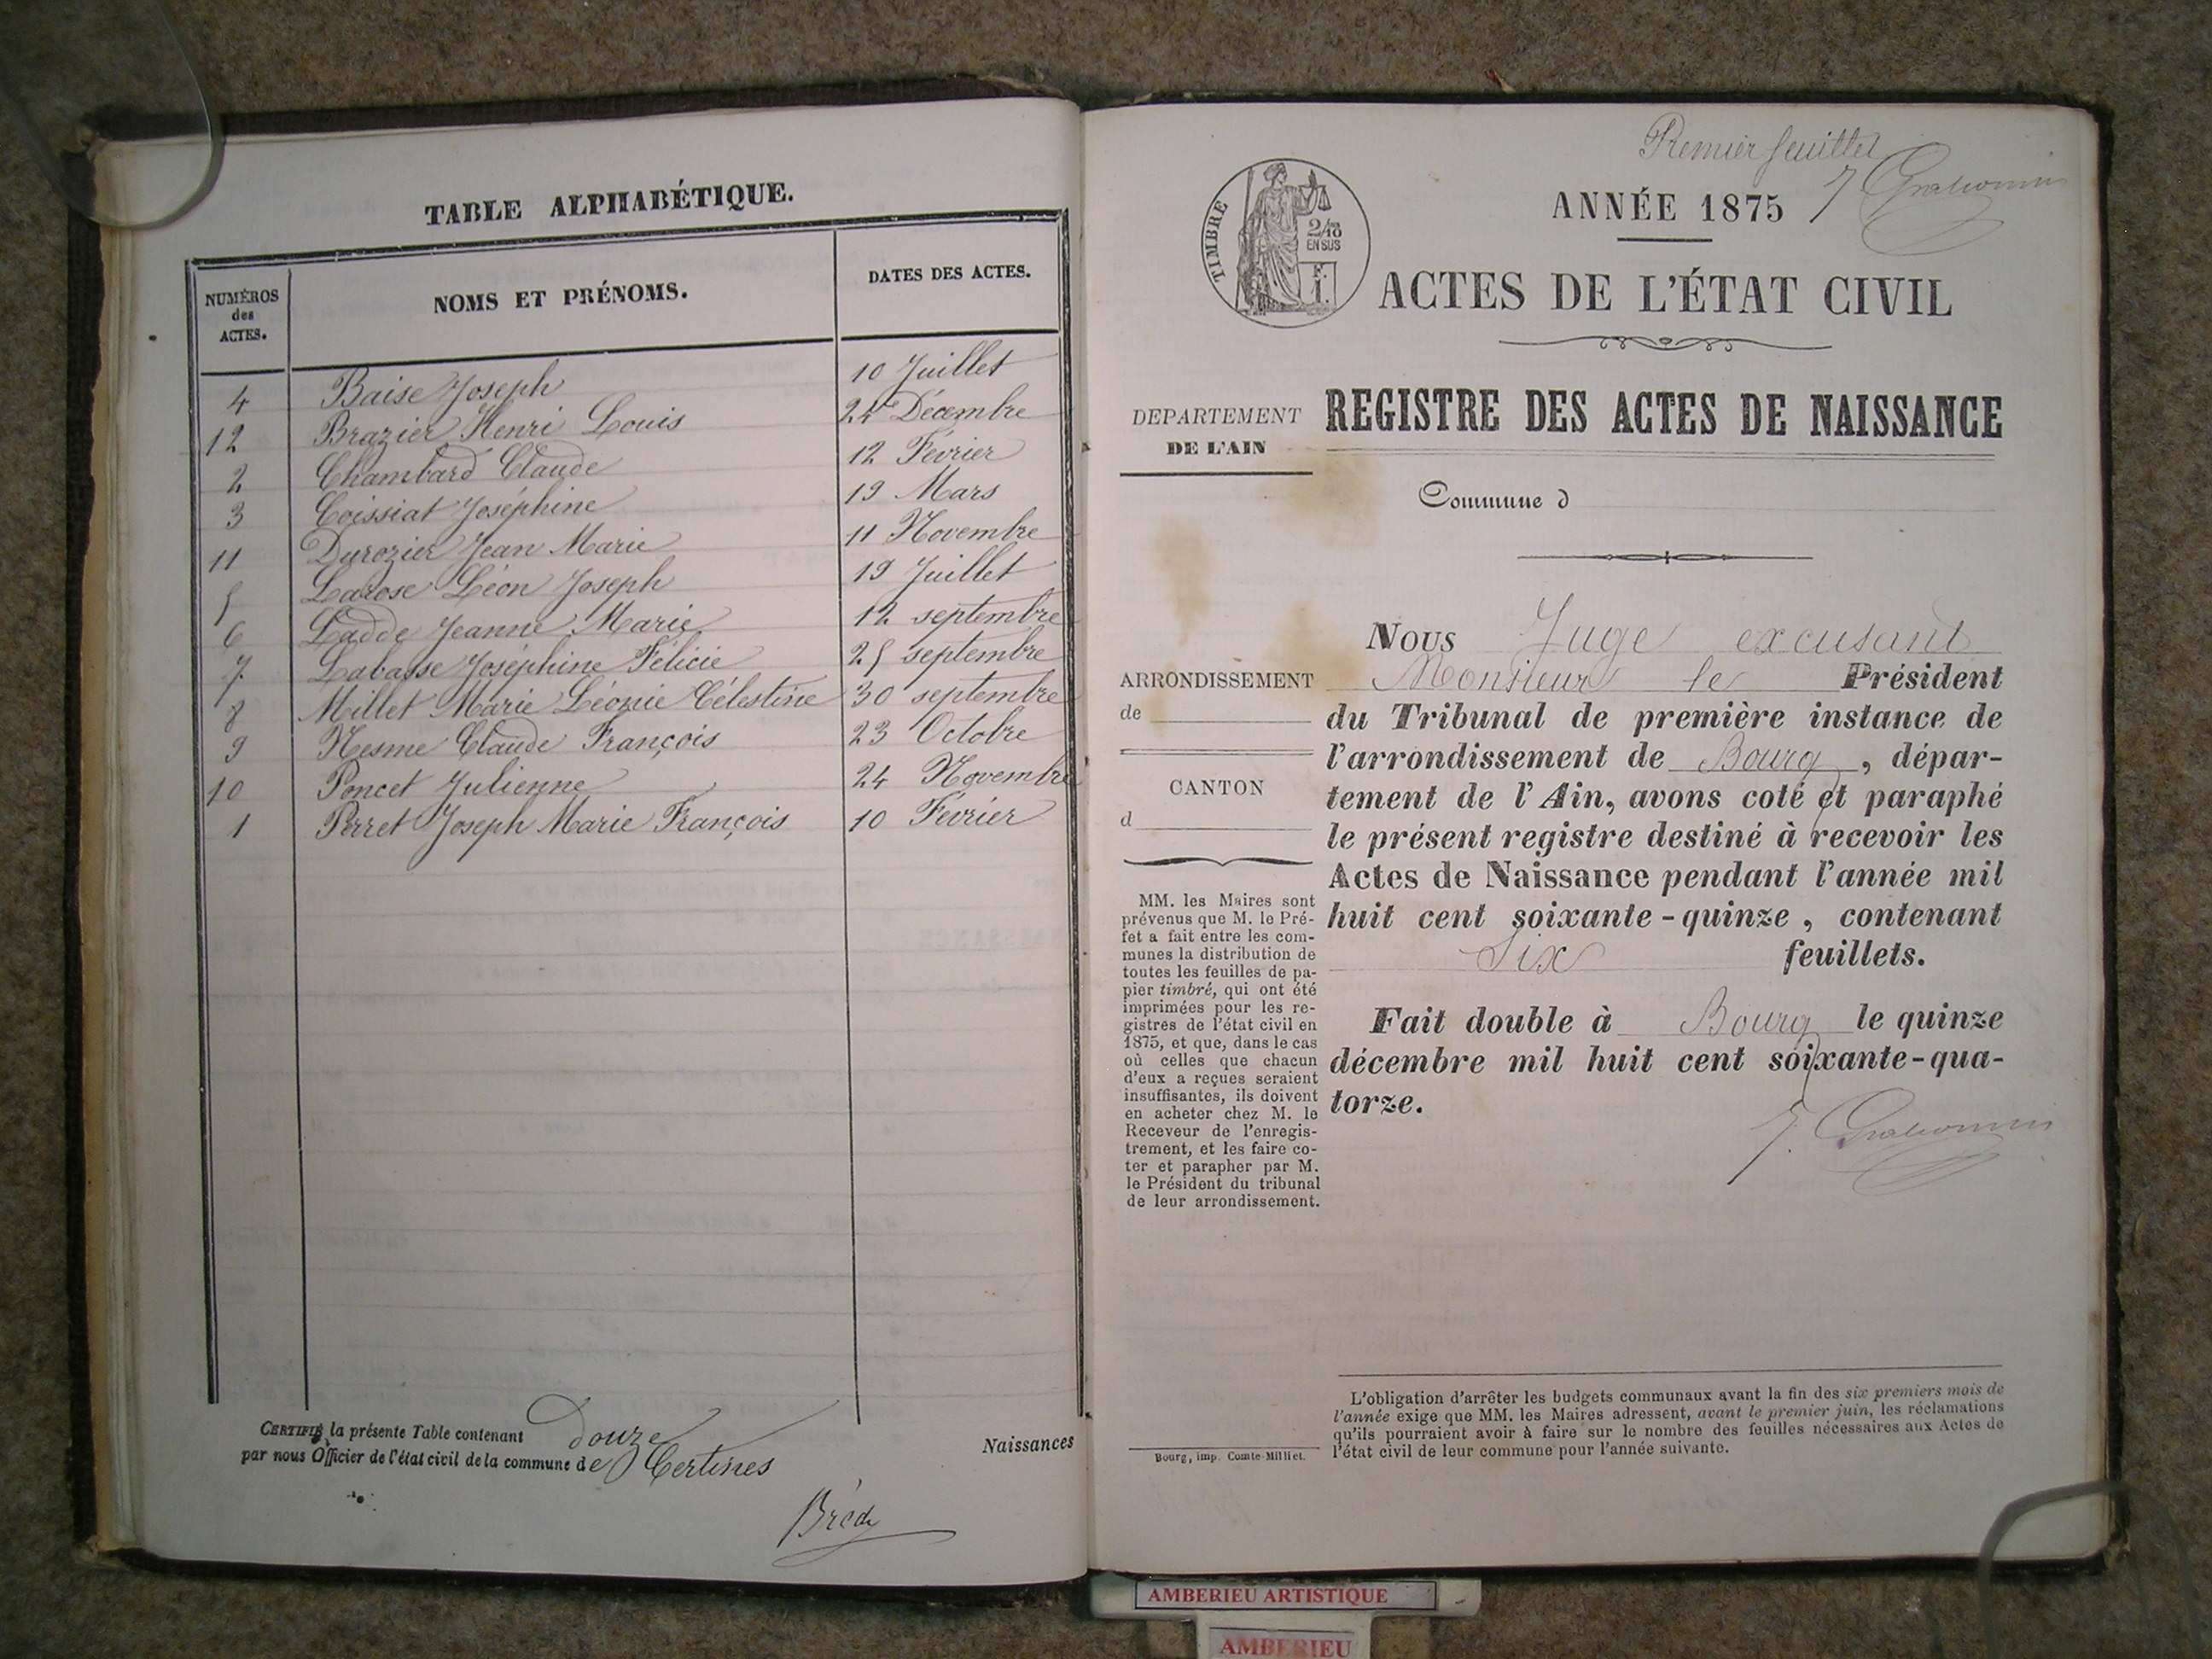 TABLE ALPHABÉTIQUE.
NUMÉROS des ACTES. NOMS ET PRÉNOMS. DATES DES ACTES.
4 Baise Joseph 10 Juillet
12 Brazier Henri Louis 24 Décembre
2 Chambard Claude 12 Février
3 Coissiat Joséphine 19 Mars
11 Durozier Jean Marie 11 Novembre
5 Larose Léon Joseph 19 Juillet
6 Ladde Jeanne Marie 12 septembre
7 Labasse Joséphine Félicie 25 septembre
8 Millet Marie Léonie Célestine 30 septembre
9 Nesme Claude François 23 Octobre
10 Poncet Julienne 24 Novembre
1 Perret Joseph Marie François 10 Février
CERTIFIÉ la présente Table contenant Douze Naissances
par nous Officier de l'état civil de la commune de Certines
Brédy
Premier feuillet
TIMBRE
2/10
EN SUS
F.
1.
ANNÉE 1875
ACTES DE L'ÉTAT CIVIL
DEPARTEMENT
DE L'AIN
REGISTRE DES ACTES DE NAISSANCE
Commune d
ARRONDISSEMENT
de
CANTON
d
MM. les Maires sont
prévenus que M. le Pré-
fet a fait entre les com-
munes la distribution de
toutes les feuilles de pa-
pier timbré, qui ont été
imprimées pour les re-
gistres de l'état civil en
1875, et que, dans le cas
où celles que chacun
d'eux a reçues seraient
insuffisantes, ils doivent
en acheter chez M. le
Receveur de l'enregis-
trement, et les faire co-
ter et parapher par M.
le Président du tribunal
de leur arrondissement.
Nous Juge excusant
Monsieur le Président
du Tribunal de première instance de
l'arrondissement de Bourg, dépar-
tement de l'Ain, avons coté et paraphé
le présent registre destiné à recevoir les
Actes de Naissance pendant l'année mil
huit cent soixante-quinze, contenant
Six feuillets.
Fait double à Bourg le quinze
décembre mil huit cent soixante-qua-
torze.
L'obligation d'arrêter les budgets communaux avant la fin des six premiers mois de
l'année exige que MM. les Maires adressent, avant le premier juin, les réclamations
qu'ils pourraient avoir à faire sur le nombre des feuilles nécessaires aux Actes de
l'état civil de leur commune pour l'année suivante.
Bourg, imp. Comte-Milliet.
AMBERIEU ARTISTIQUE
AMBERIEU